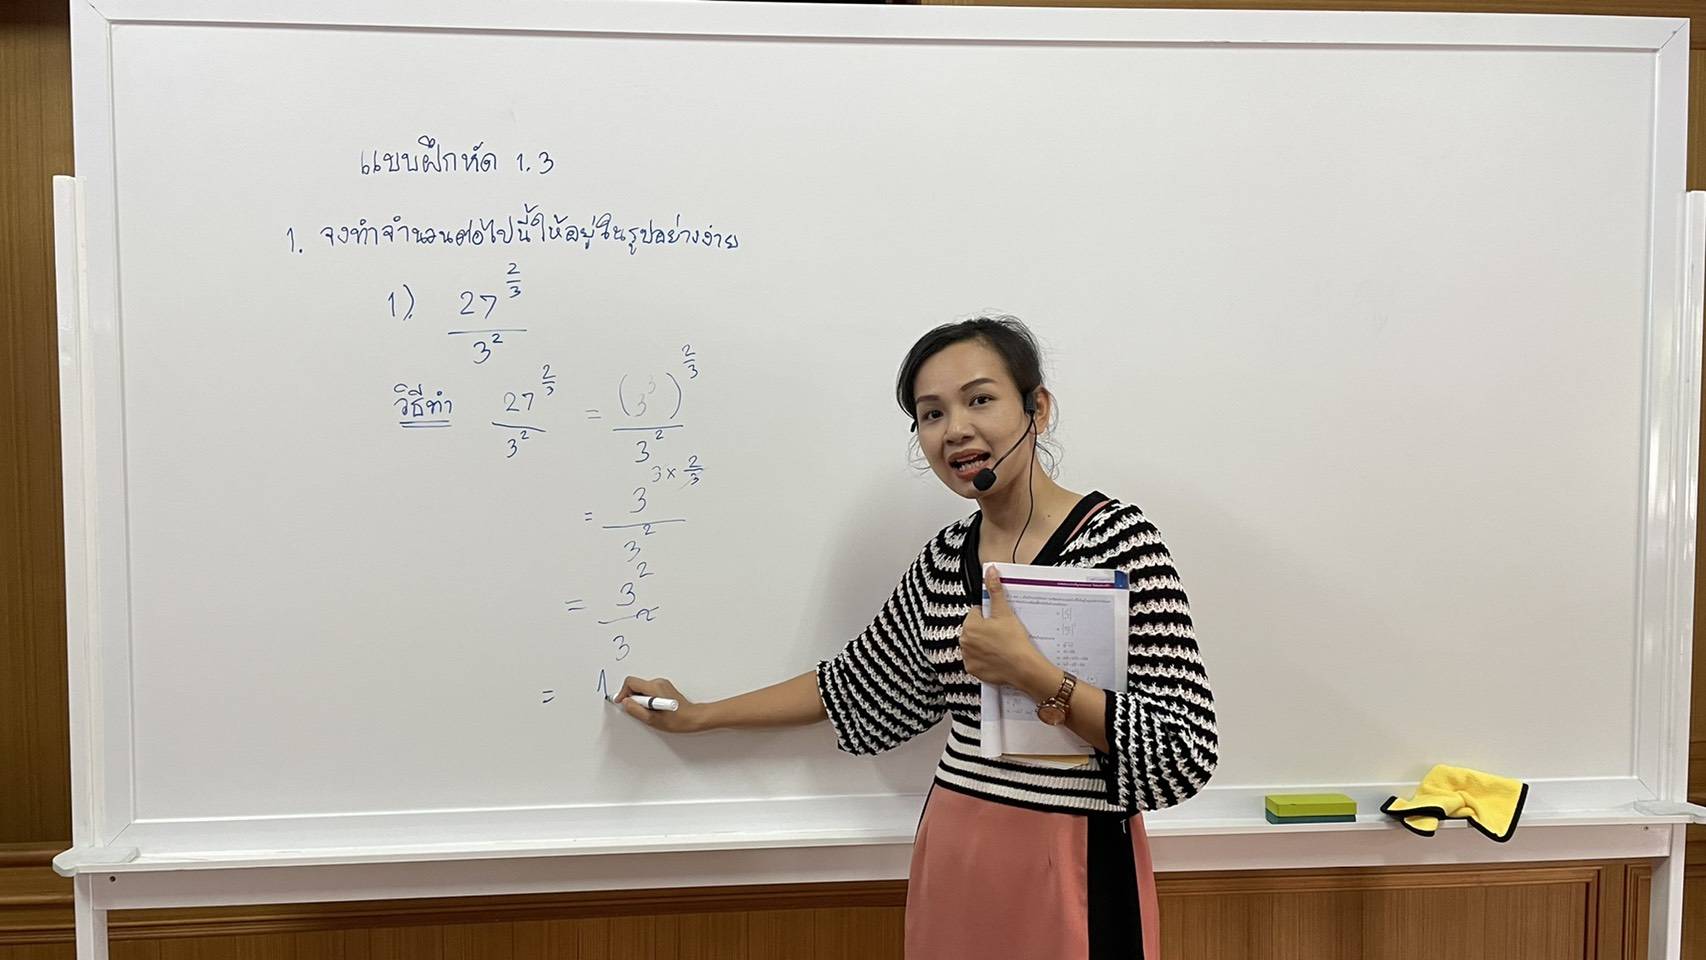 แบบฝึกหัด 1.3
1. จงทำจำนวนต่อไปนี้ให้อยู่ในรูปอย่างง่าย
1) 27^(2/3) / 3^2
วิธีทำ 27^(2/3) / 3^2 = (3^3)^(2/3) / 3^2
= 3^(3×2/3) / 3^2
= 3^2 / 3^2
= 1